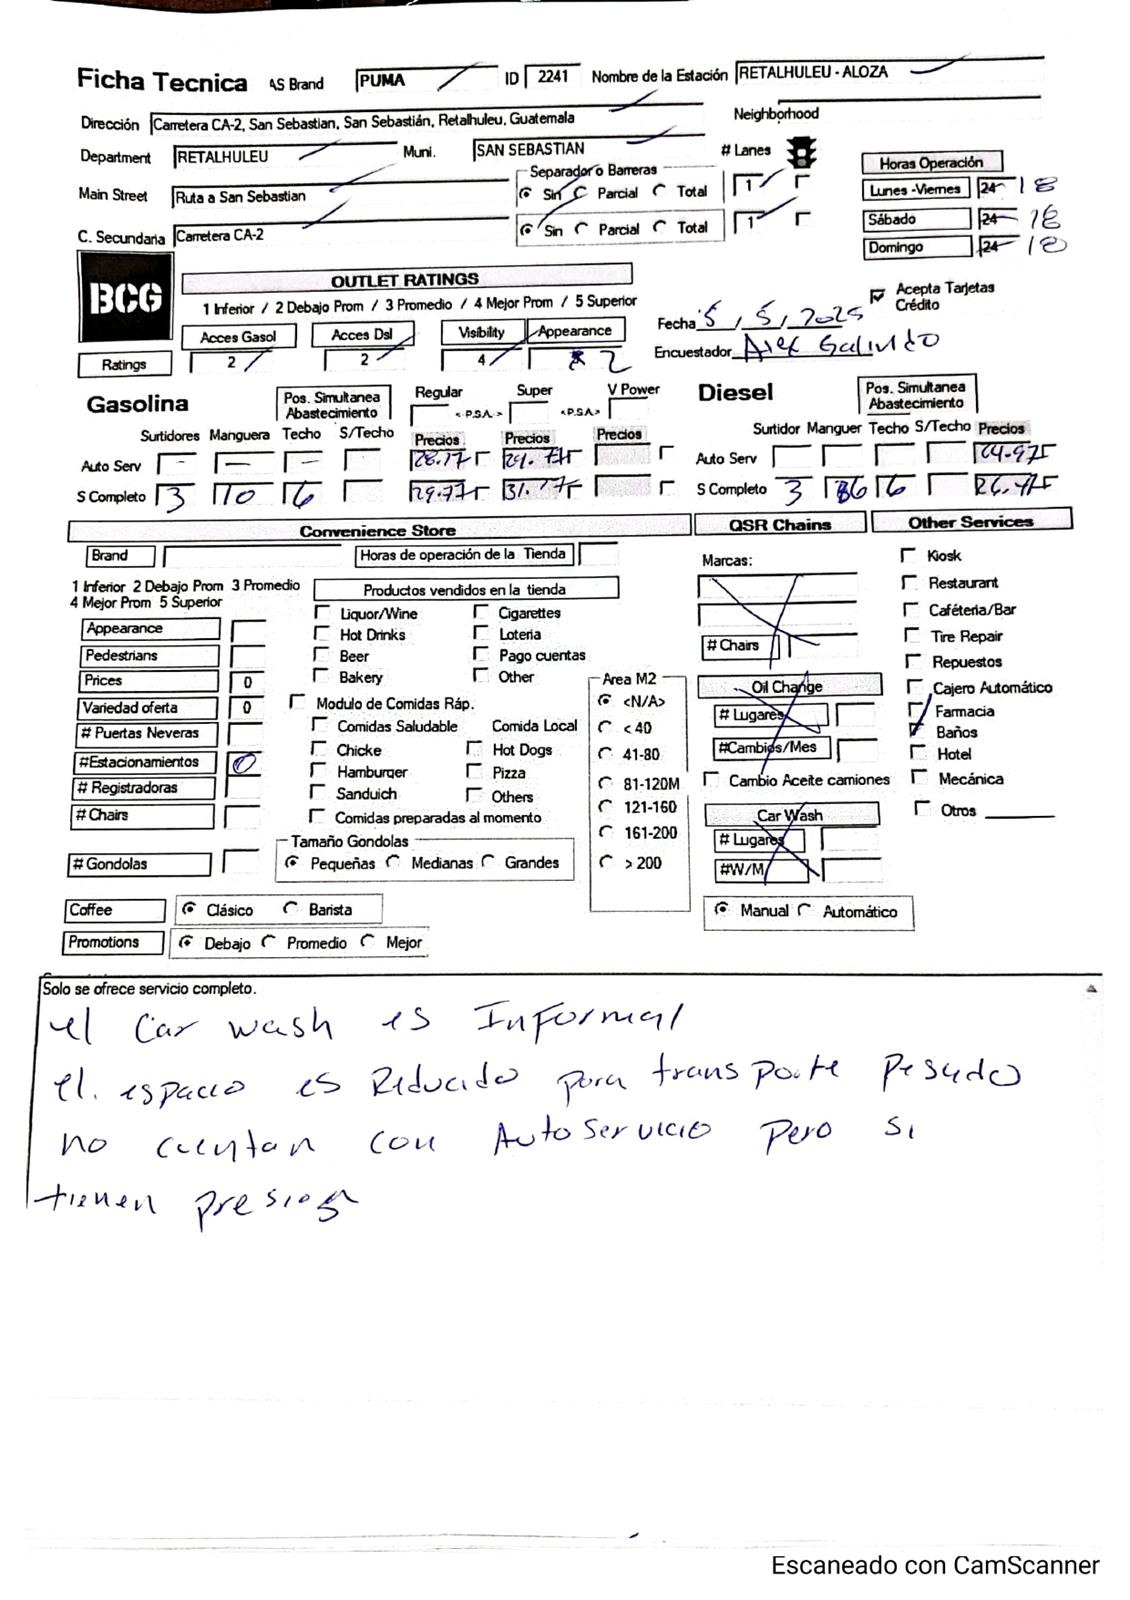 Ficha Tecnica AS Brand PUMA ID 2241 Nombre de la Estación RETALHULEU - ALOZA
Dirección Carretera CA-2, San Sebastian, San Sebastián, Retalhuleu, Guatemala Neighborhood
Department RETALHULEU Muni. SAN SEBASTIAN # Lanes
Separador o Barreras Horas Operación
Main Street Ruta a San Sebastian Sin Parcial Total 1 Lunes -Viernes 24 18
C. Secundaria Carretera CA-2 Sin Parcial Total 1 Sábado 24 18
Domingo 24 18
BCG
OUTLET RATINGS
1 Inferior / 2 Debajo Prom / 3 Promedio / 4 Mejor Prom / 5 Superior
Acepta Tarjetas Crédito
Fecha 5 / 5 / 2025
Acces Gasol Acces Dsl Visibility Appearance
Encuestador Alex Galindo
Ratings 2 2 4 2
Gasolina Pos. Simultanea Abastecimiento Regular <-P.S.A-> Super <-P.S.A-> V Power
Diesel Pos. Simultanea Abastecimiento
Surtidores Manguera Techo S/Techo Precios Precios Precios
Surtidor Manguer Techo S/Techo Precios
Auto Serv - - - 28.77
Auto Serv 24.97
S Completo 3 10 6 29.77 31.77
S Completo 3 6 6 26.47
Convenience Store QSR Chains Other Services
Brand Horas de operación de la Tienda
Marcas:
# Chairs
1 Inferior 2 Debajo Prom 3 Promedio
4 Mejor Prom 5 Superior
Productos vendidos en la tienda
Appearance
Pedestrians
Prices 0
Variedad oferta 0
# Puertas Neveras
#Estacionamientos 0
# Registradoras
# Chairs
# Gondolas
Liquor/Wine Cigarettes
Hot Drinks Loteria
Beer Pago cuentas
Bakery Other
Modulo de Comidas Ráp.
Comidas Saludable Comida Local
Chicke Hot Dogs
Hamburger Pizza
Sanduich Others
Comidas preparadas al momento
Tamaño Gondolas
Pequeñas Medianas Grandes
Area M2
<N/A>
< 40
41-80
81-120M
121-160
161-200
> 200
Oil Change
# Lugares
#Cambios/Mes
Cambio Aceite camiones
Car Wash
# Lugares
#W/M
Manual Automático
Kiosk
Restaurant
Caféteria/Bar
Tire Repair
Repuestos
Cajero Automático
Farmacia
Baños
Hotel
Mecánica
Otros
Coffee Clásico Barista
Promotions Debajo Promedio Mejor
Solo se ofrece servicio completo.
el Car wash es Informal
el. espacio es Reducido para transporte pesado
no cuentan con AutoServicio pero si
tienen
Escaneado con CamScanner